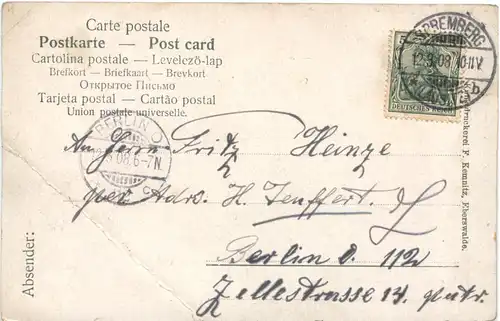 Carte postale
Postkarte — Post card
Cartolina postale — Levelező-lap
Brefkort — Briefkaart — Brevkort
Открытое Письмо
Tarjeta postal — Cartão postal
Union postale universelle.
SPREMBERG
12.3.08 10-11V.
b
DEUTSCHES REICH
BERLIN O
08.6-7N
An Herrn Fritz Heinze
per Adrs. H. Zeuffert.
Berlin O. 112
Zellestrasse 14. part.
Absender:
Druckerei F. Kemnitz, Eberswalde.